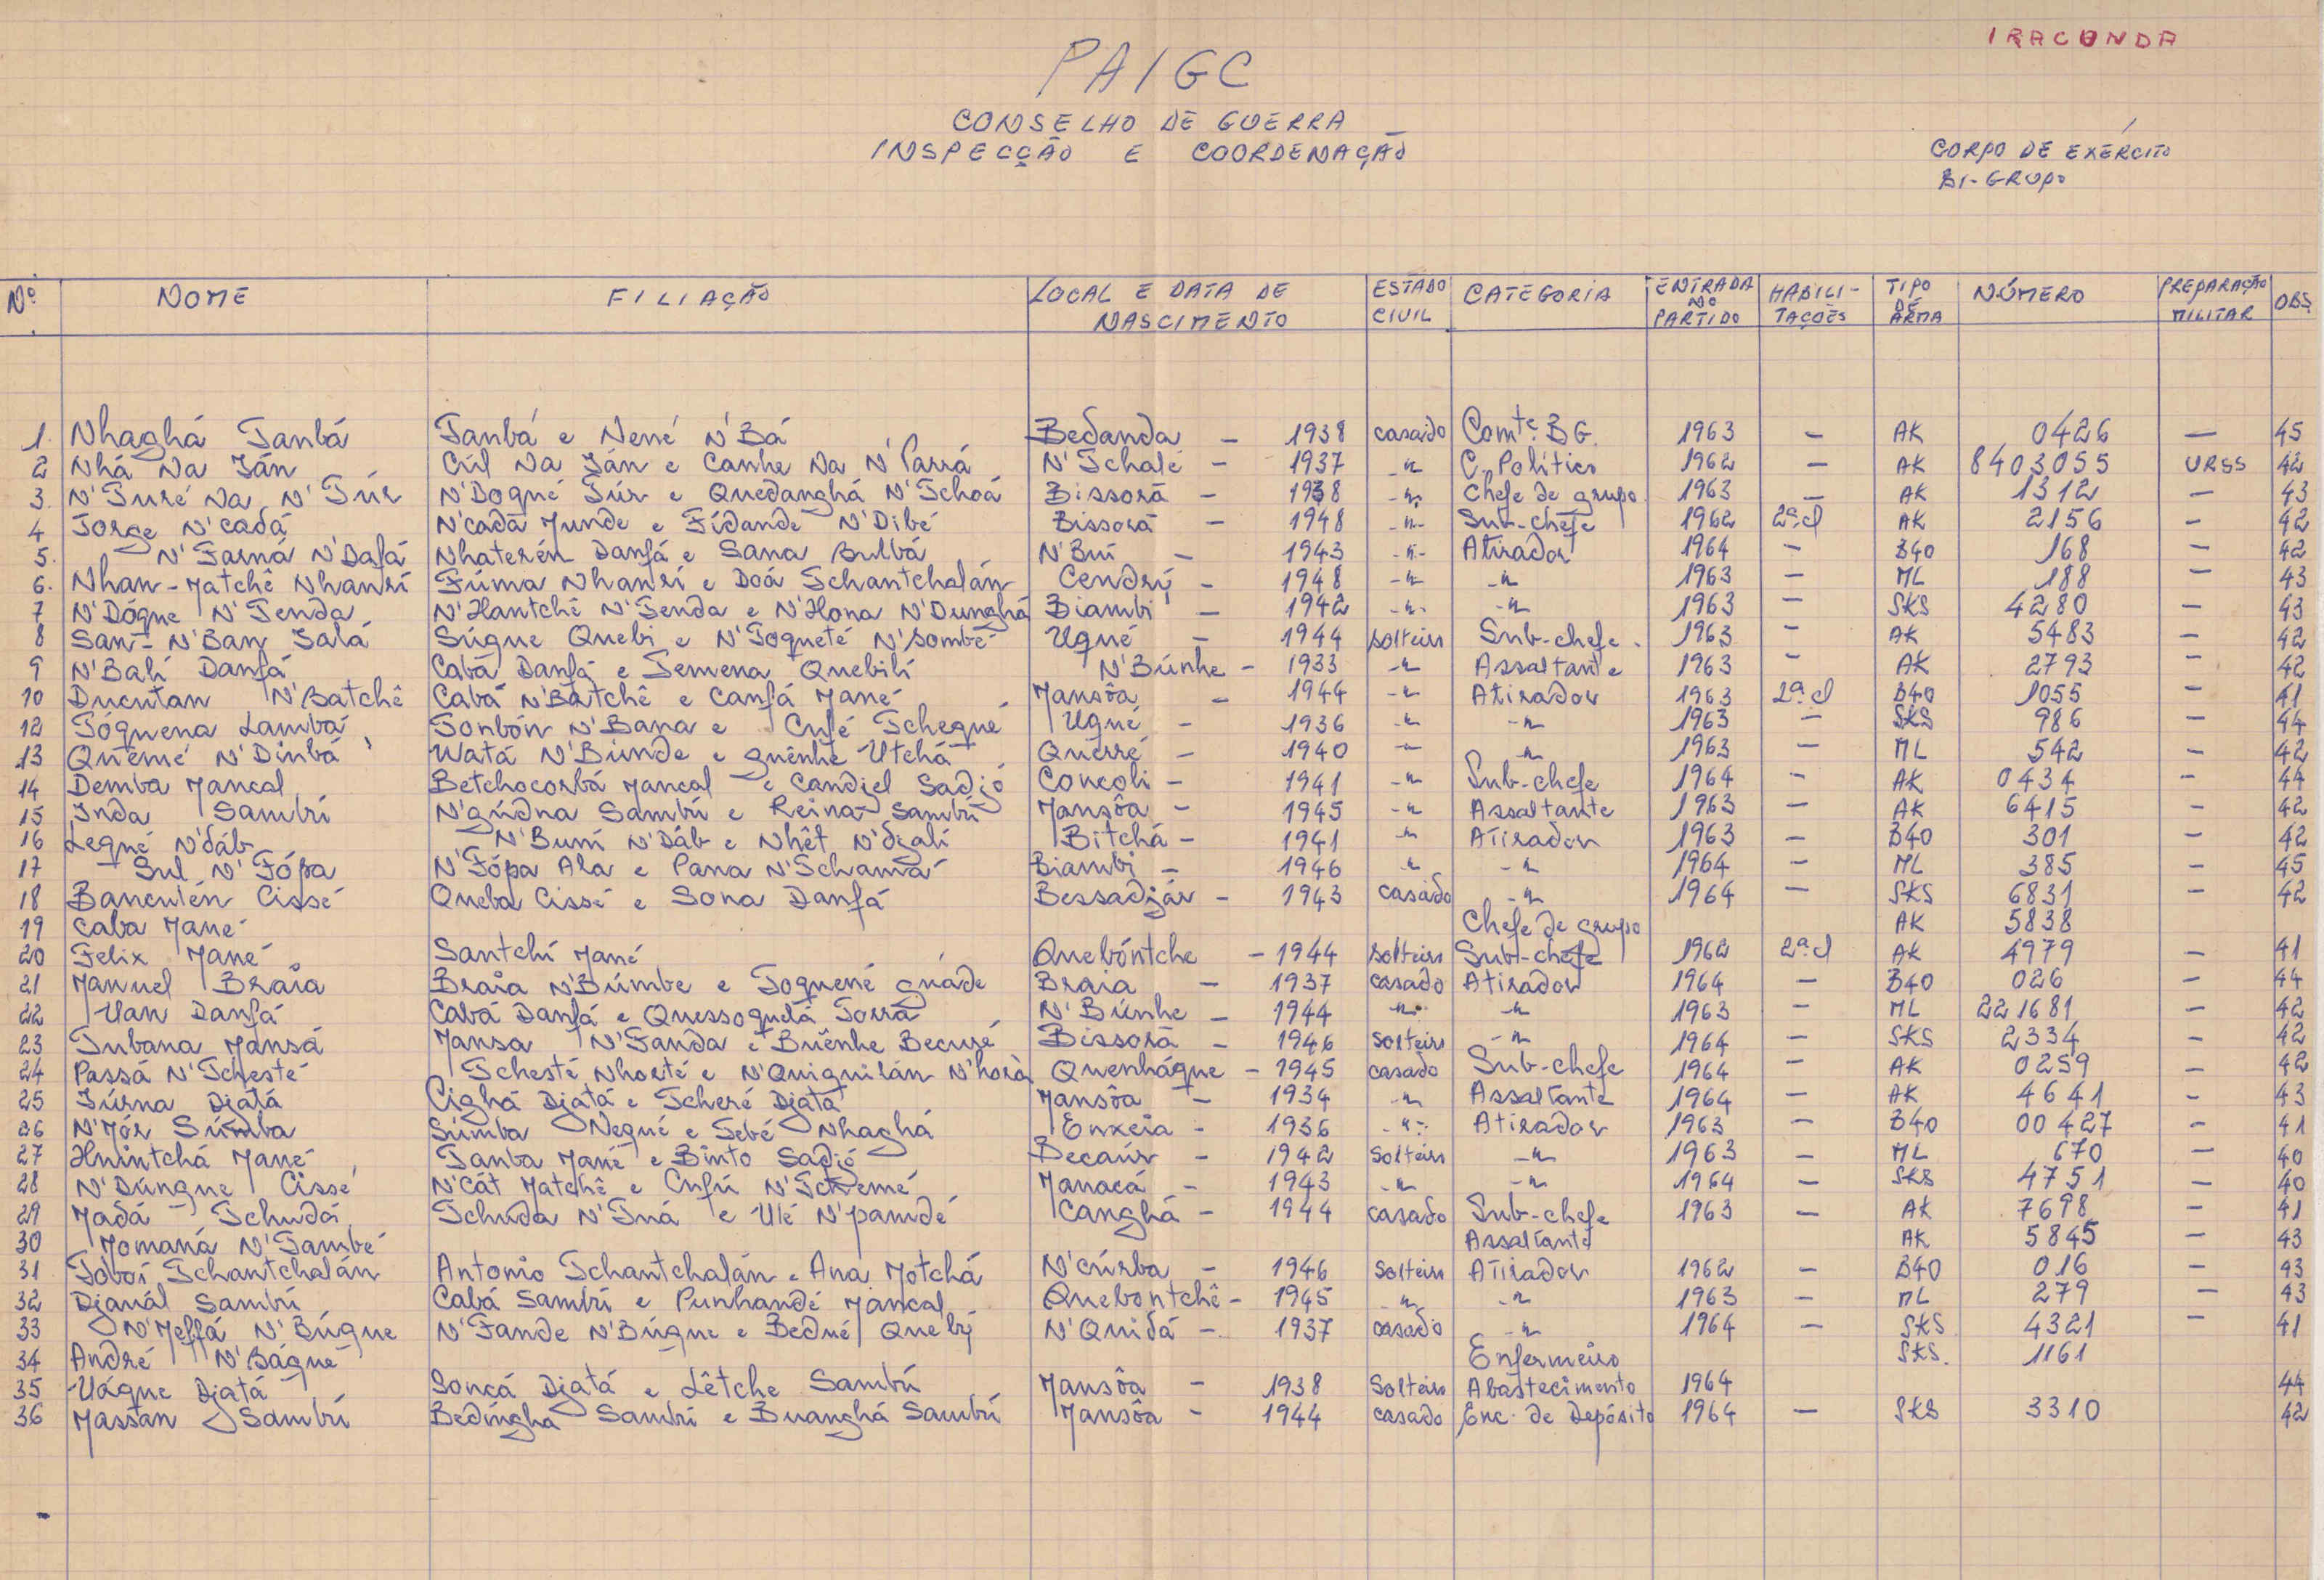 IRACUNDA
PAIGC
CONSELHO DE GUERRA
INSPECÇÃO E COORDENAÇÃO
CORPO DE EXÉRCITO
BI-GRUPO
Nº NOME FILIAÇÃO LOCAL E DATA DE NASCIMENTO ESTADO CIVIL CATEGORIA ENTRADA NO PARTIDO HABILITAÇÕES TIPO DE ARMA NÚMERO PREPARAÇÃO MILITAR OBS
1. Nhaghá Tanbá Tanbá e Nené N'Bá Bedanda – 1938 casado Comte. BG. 1963 – AK 0426 — 45
2 Nhá Na Ián Cúl Na Ián e Canhe Na N'Parrá N'Tchalé – 1937 -"- C. Político 1962 – AK 8403055 URSS 42
3. N'Turé Na N'Túr N'Dogné Túr e Quedanghá N'Tchoá Bissorã – 1938 -"- Chefe de grupo. 1963 – AK 1312 – 43
4 Jorge N'cadá N'cadã Munde e Fídande N'Dibé Bissorã – 1948 -"- Sub-chefe 1962 2ª cl AK 2156 – 42
5. N'Farná N'Dafá Nhaterén Danfá e Sana Bulbá N'Buí – 1943 -"- Atirador 1964 – B40 168 – 42
6. Nhan-Matchê Nhanrí Fúma Nhanrí e Doá Tchantchalán Cendrý – 1948 -"- -"- 1963 – ML 188 – 43
7 N'Dógne N'Tenda N'Hantchê N'Tenda e N'Hona N'Dunghá Biambi – 1942 -"- -"- 1963 – SKS 4280 – 43
8 San-N'Ban Salá Súgue Quebi e N'Toqueté N'sombé Ugué – 1944 solteiro Sub-chefe. 1963 – AK 5483 – 42
9 N'Balí Danfá Cabá Danfá e Temena Quebilí N'Búnhe – 1933 -"- Assaltante 1963 – AK 2793 – 42
10 Ducutan N'Batchê Cabá N'Batchê e Canfá Mané Mansôa – 1944 -"- Atirador 1963 2ª cl B40 1055 – 41
12 Tóguena Lambá Tonbón N'Bana e Cufé Tchegué Ugué – 1936 -"- -"- 1963 – SKS 986 – 44
13 Quêmé N'Dinbá Watá N'Búnde e guênhe Utchá Querré – 1940 -"- -"- 1963 – ML 542 – 42
14 Demba Mancal Betchocorbá Mancal e Candjel Sadjó Concoli – 1941 -"- Sub-chefe 1964 – AK 0434 – 44
15 Inda Sambú N'gúdna Sambú e Reina Sambú Mansôa – 1945 -"- Assaltante 1963 – AK 6415 – 42
16 Legné N'dáb N'Buní N'Dáb e Nhêt N'djalí Bitchá – 1941 -"- Atirador 1963 – B40 301 – 42
17 Sul N'Fópa N'Fópa Ala e Pana N'Tchamá Biambi – 1946 -"- -"- 1964 – ML 385 – 45
18 Bancutén Cissé Queba Cissé e Sona Danfá Bessadjár – 1943 casado -"- 1964 – SKS 6831 – 42
19 Caba Mané Chefe de grupo AK 5838
20 Felix Mané Santchí Mané Quebóntche – 1944 solteiro Sub-chefe 1962 2ª cl AK 4979 – 41
21 Manuel Braia Braia N'Búmbe e Toquené guáde Braia – 1937 casado Atirador 1964 – B40 026 – 44
22 Uan Danfá Cabá Danfá e Quessoquetá Torrá N'Búnhe – 1944 -"- -"- 1963 – ML 221681 – 42
23 Tubana Mansá Mansa N'Fanda e Buênhe Becuré Bissorã – 1946 solteiro -"- 1964 – SKS 2334 – 42
24 Passá N'Tchesté Tchesté Nhorté e N'Quiguilán N'horà Quenháque – 1945 casado Sub-chefe 1964 – AK 0259 – 42
25 Iúrna Djatá Cighá Djatá e Tcheré Djatá Mansôa – 1934 -"- Assaltante 1964 – AK 4641 – 43
26 N'Iór Súmba Súmba Negué e Sebé Nhaghá Enxeia – 1936 -"- Atirador 1963 – B40 00427 – 41
27 Huintchá Mané Tanba Mané e Binto Sadjó Becaúr – 1942 Solteiro -"- 1963 – ML 670 – 40
28 N'Dúngne Cissé N'Cát Matchê e Cufú N'Tchemé Manacá – 1943 -"- -"- 1964 – SKS 4751 – 40
29 Madá Tchudá Tchuda N'Tná e Ulé N'pamdé Canghá – 1944 casado Sub-chefe 1963 – AK 7698 – 41
30 Momaná N'També Assaltante AK 5845 – 43
31 Toboi Tchantchalán Antonio Tchantchalán e Ana Motchá N'cúrba – 1946 Solteiro Atirador 1962 – B40 016 – 43
32 Djanál Sambú Cabá Sambú e Punhandé Mancal Quebontchê – 1945 -"- -"- 1963 – ML 279 – 43
33 N'Meffá N'Búgue N'Fande N'Búgue e Bedné Queby N'Quidá – 1937 casado -"- 1964 – SKS 4321 – 41
34 André N'Bágné Enfermeiro SKS. 1161
35 Uágne Djatá Soncá Djatá e Lêtche Sambú Mansôa – 1938 Solteiro Abastecimento 1964 44
36 Massan Sambú Bedíngha Sambú e Buanghá Sambú Mansôa – 1944 casado Enc. de Depósito 1964 – SKS 3310 42